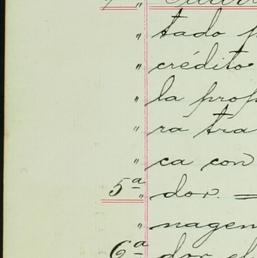 " tado p
" crédito
" la prop
" ra tra
" ca con
5ª " dor. =
" nagen
6ª " dor el